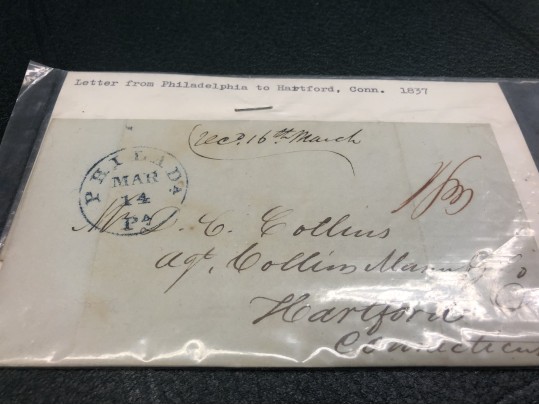 Letter from Philadelphia to Hartford, Conn. 1837
Recd. 16th March
PHILADA
MAR
14
Pa
Mr D. C. Collins
Agt. Collins Manufg Co
Hartford
Connecticut